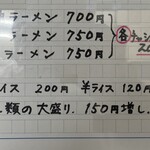 ラーメン 700円
ラーメン 750円
ラーメン 750円
各チャッシ
イス 200円 半ライス 120円
類の大盛り. 150円増し.